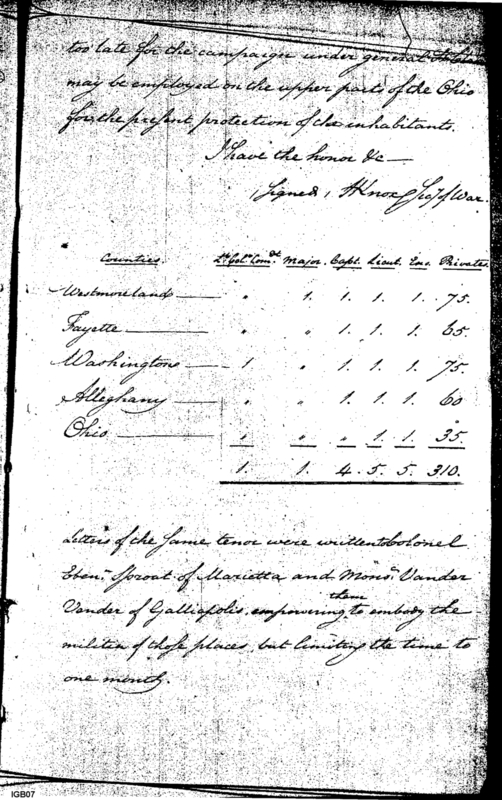 too late for the campaign under general St Clair
may be employed on the upper parts of the Ohio
for the present protection of the inhabitants.
I have the honor &c —
(signed) HKnox Secy of War.
Counties. Lt Col. Comdt. Major. Capt. Lieut. Ens. Privates.
Westmoreland — " 1. 1. 1. 1. 75.
Fayette — " " 1. 1. 1. 65.
Washington — 1 " 1. 1. 1. 75.
Alleghany — " " 1. 1. 1. 60
Ohio — " " " 1. 1. 35.
1. 1. 4. 5. 5. 310.
Letters of the same tenor were written to Colonel
Ebenr. Sproat of Marietta and Monsr. Vander
Vander of Galliapolis, empowering them to embody the
militia of those places, but limiting the time to
one month.
IGB07